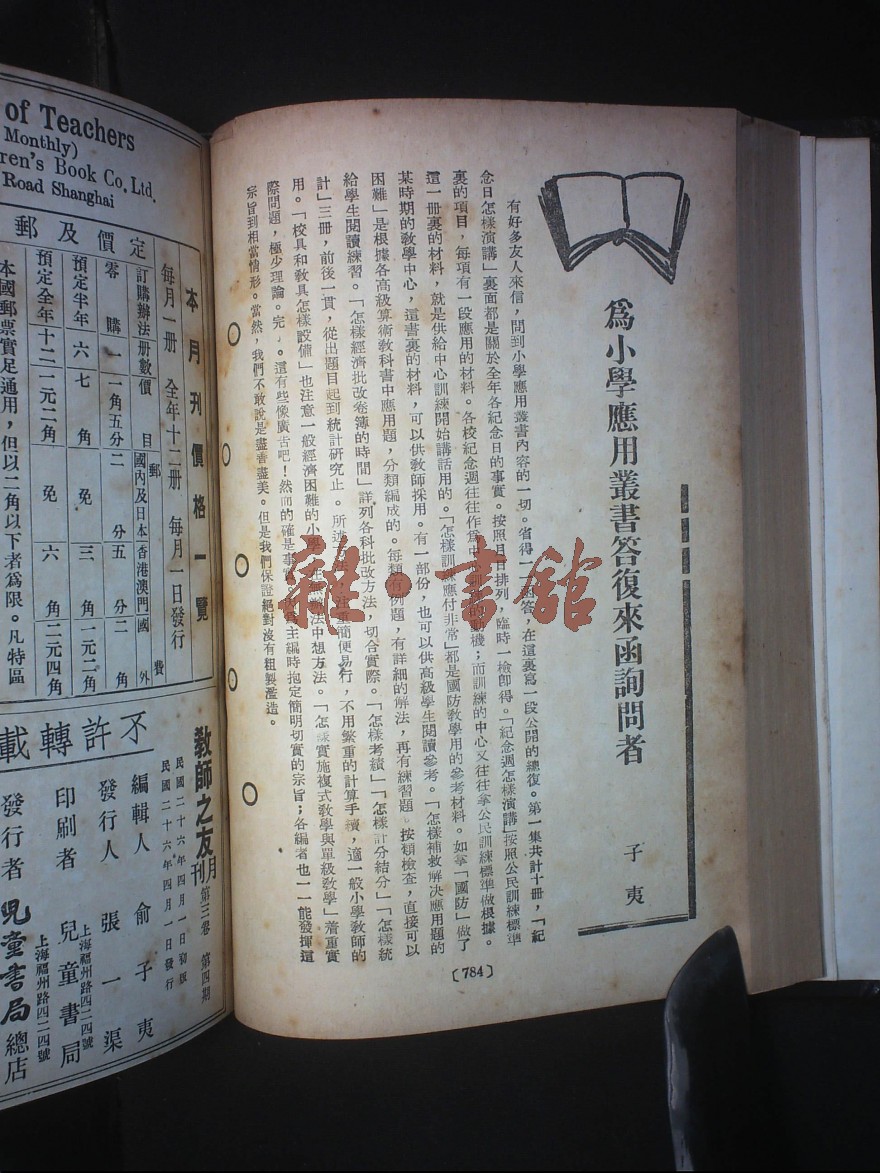 爲小學應用叢書答復來函詢問者
子夷
有好多友人來信,問到小學應用叢書內容的一切。省得一一函答,在這裏寫一段公開的總復。第一集共計十册,「紀
念日怎樣演講」裏面都是關於全年各紀念日的事實。按照月日排列,臨時一檢卽得。「紀念週怎樣演講」按照公民訓練標準
裏的項目,每項有一段應用的材料。各校紀念週往往作爲中心訓練的動機;而訓練的中心又往往拿公民訓練標準做根據。
這一册裏的材料,就是供給中心訓練開始講話用的。「怎樣訓練應付非常」都是國防教學用的參考材料。如拿「國防」做了
某時期的教學中心,這書裏的材料,可以供教師採用。有一部份,也可以供高級學生閱讀參考。「怎樣補救解决應用題的
困難」是根據各高級算術教科書中應用題,分類編成的。每類有例題,有詳細的解法,再有練習題。按類檢查,直接可以
給學生閱讀練習。「怎樣經濟批改卷簿的時間」詳列各科批改方法,切合實際。「怎樣考績」「怎樣計分結分」「怎樣統
計」三册,前後一貫,從出題目起到統計研究止。所述方法,注重簡便易行,不用繁重的計算手續,適一般小學教師的
用。「校具和教具怎樣設備」也注意一般經濟困難的小學,在無辦法中想方法。「怎樣實施複式教學與單級教學」着重實
際問題,極少理論。完了。這有些像廣吿吧!然而的確是事實。主編時抱定簡明切實的宗旨;各編者也一一能發揮這
宗旨到相當情形。當然,我們不敢說是盡善盡美。但是我們保證絕對沒有粗製濫造。
〔784〕
雜·書館
of Teachers
Monthly)
ren's Book Co. Ltd.
Road Shanghai
定價及郵費
本月刊價格一覽
每月一册 全年十二册 每月一日發行
訂購辦法 册數 價目 郵費 國內及日本 香港澳門 國外
零購 一 一角五分 二分 五分 二角
預定半年 六 七角 免 三角 一元二角
預定全年 十二 一元二角 免 六角 二元四角
本國郵票實足通用,但以二角以下者爲限。凡特區
教師之友月刊 第三卷 第四期
民國二十六年四月一日初版
民國二十六年四月一日發行
不許轉載
編輯人 俞子夷
發行人 張一渠
印刷者 兒童書局
上海福州路四二四號
發行者 兒童書局總店
上海福州路四二四號